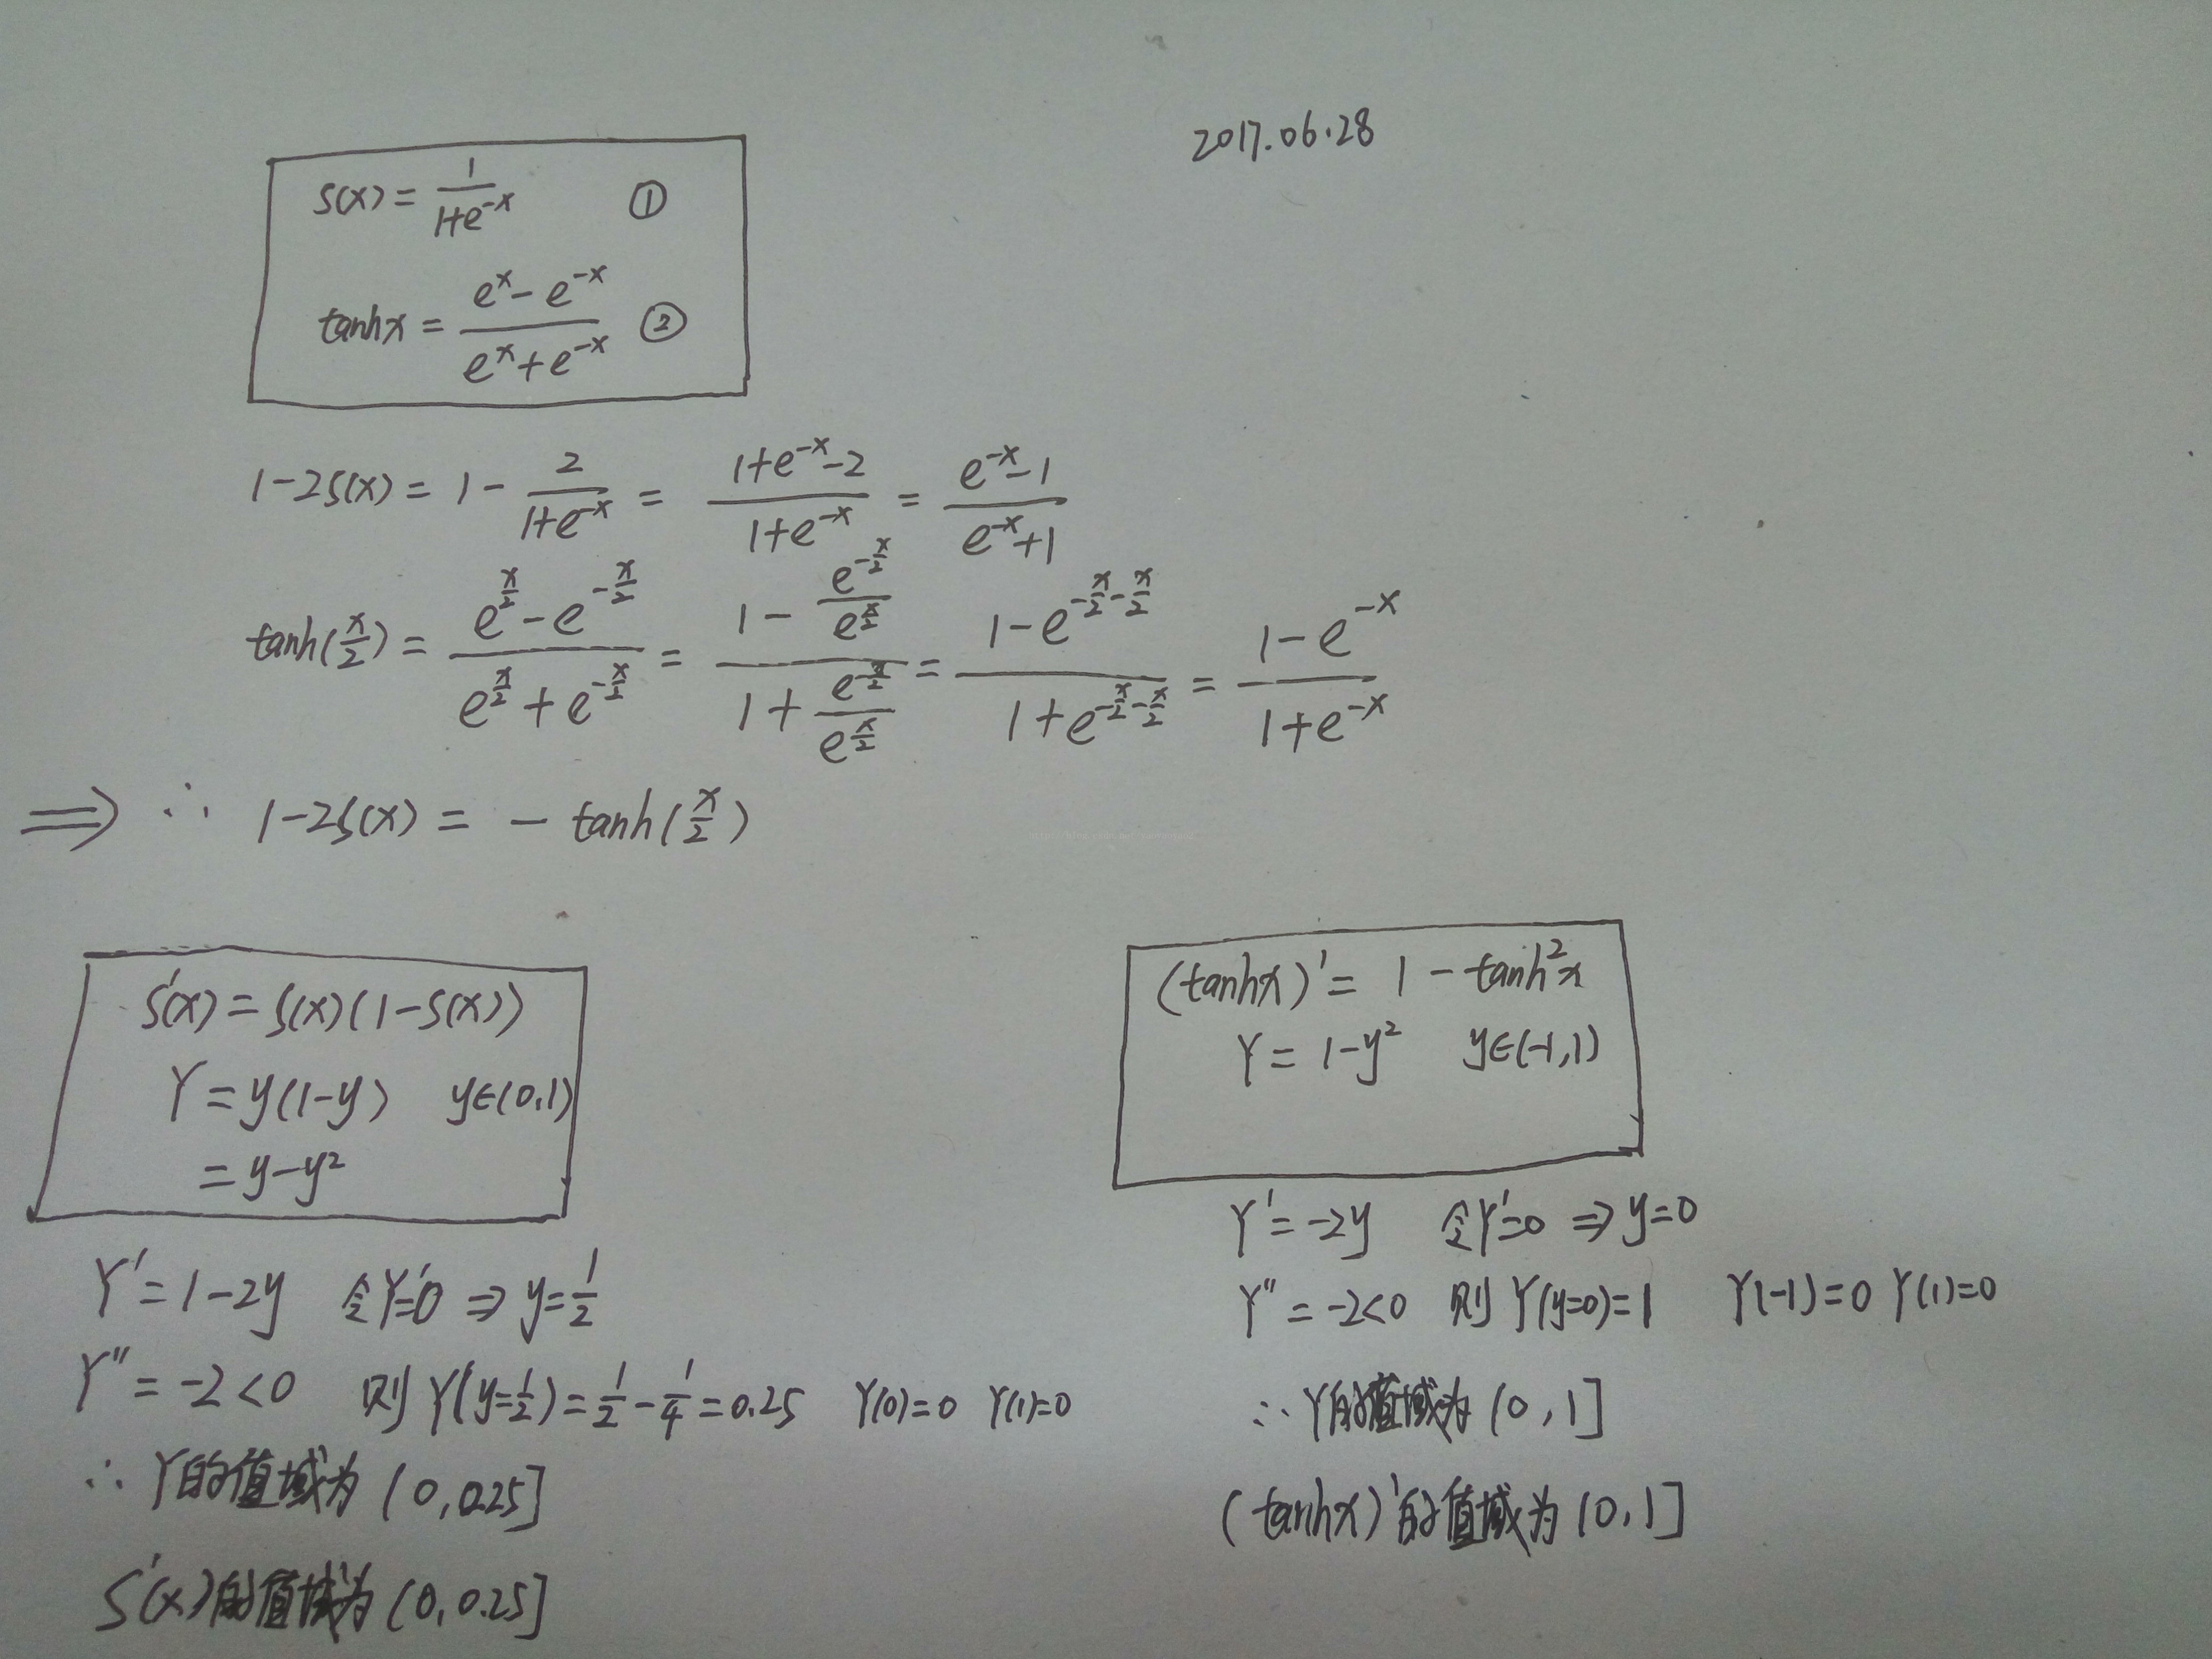 2017.06.28
S(x) = 1/(1+e^{-x}) ①
tanhx = (e^x - e^{-x})/(e^x + e^{-x}) ②
1-2S(x) = 1 - 2/(1+e^{-x}) = (1+e^{-x}-2)/(1+e^{-x}) = (e^{-x}-1)/(e^{-x}+1)
tanh(x/2) = (e^{x/2} - e^{-x/2})/(e^{x/2} + e^{-x/2}) = (1 - e^{-x/2}/e^{x/2})/(1 + e^{-x/2}/e^{x/2}) = (1-e^{-x/2-x/2})/(1+e^{-x/2-x/2}) = (1-e^{-x})/(1+e^{-x})
⇒ ∴ 1-2S(x) = - tanh(x/2)
S'(x) = S(x)(1-S(x))
Y = y(1-y) y∈(0,1)
= y-y²
Y' = 1-2y 令Y'=0 ⇒ y=1/2
Y'' = -2<0 则 Y(y=1/2) = 1/2 - 1/4 = 0.25 Y(0)=0 Y(1)=0
∴ Y的值域为 (0, 0.25]
S'(x)的值域为 (0, 0.25]
(tanhx)' = 1 - tanh²x
Y = 1-y² y∈(-1,1)
Y' = -2y 令Y'=0 ⇒ y=0
Y'' = -2<0 则 Y(y=0)=1 Y(-1)=0 Y(1)=0
∴ Y的值域为 (0, 1]
(tanhx)'的值域为 (0, 1]